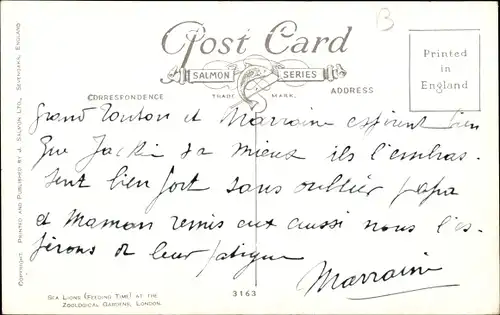 B
Post Card
SALMON SERIES
TRADE MARK.
CORRESPONDENCE
ADDRESS
Printed
in
England
COPYRIGHT. PRINTED AND PUBLISHED BY J. SALMON LTD., SEVENOAKS, ENGLAND
Grand Tonton et Marraine espèrent bien
que Jackie va mieux ils l'embras-
sent bien fort sans oublier papa
et Maman remis eux aussi nous l'es-
pérons de leur fatigue
Marraine
SEA LIONS (FEEDING TIME) AT THE
ZOOLOGICAL GARDENS, LONDON.
3163